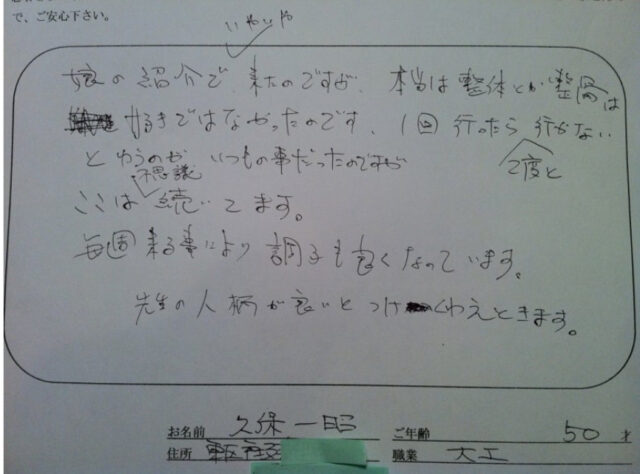 で、ご安心下さい。
いやいや
娘の紹介で 来たのですが、本当は整体とか整骨は
好きではなかったのです、1回行ったら行かない
2度と
とゆうのが いつもの事だったのですが
不思議
ここは 続いてます。
毎週来る事により 調子も良くなっています。
先生の人柄が良いと つけくわえときます。
お名前 久保一昭 ご年齢 50才
住所 職業 大工